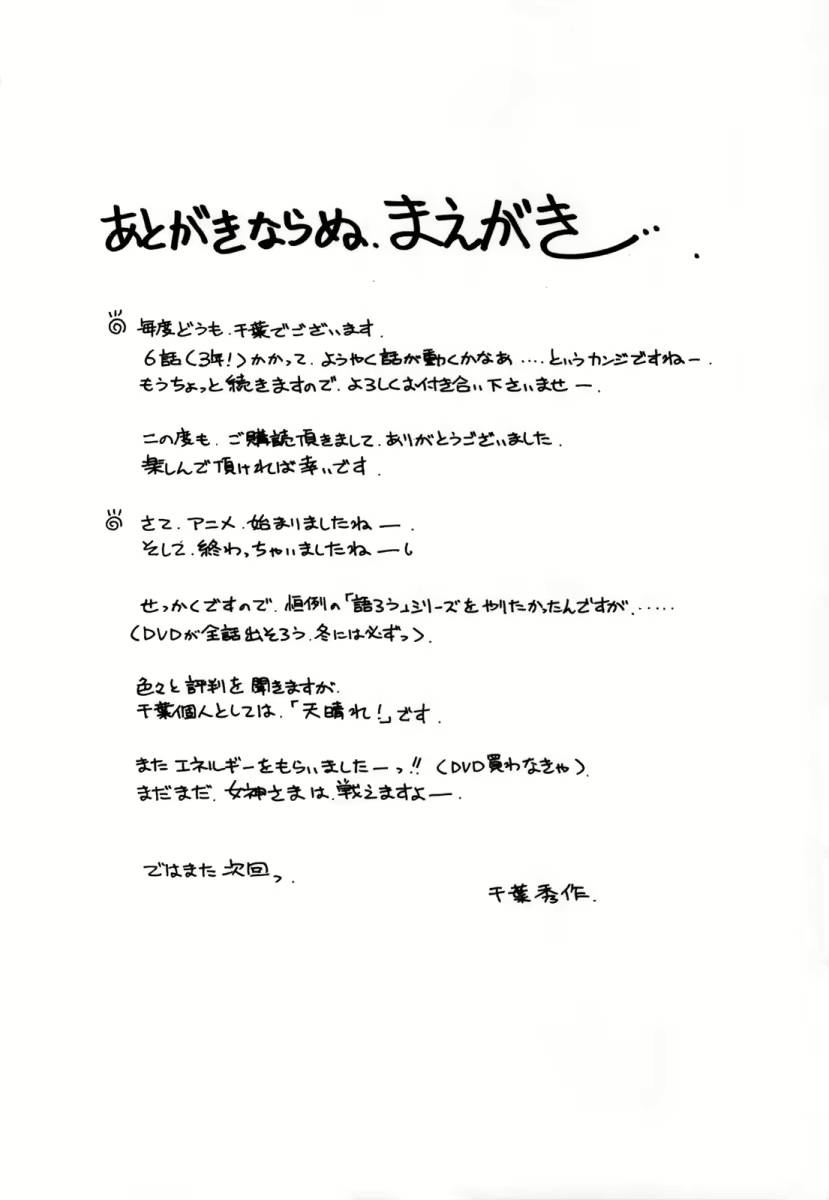 あとがきならぬ、まえがき…
毎度どうも、千葉でございます。
6話(3年!)かかって、ようやく話が動くかなあ‥‥というカンジですねー。
もうちょっと続きますので、よろしくお付き合い下さいませー。
この度も、ご購読頂きまして、ありがとうございました。
楽しんで頂ければ幸いです。
さて、アニメ、始まりましたねー。
そして、終わっちゃいましたねー。
せっかくですので、恒例の「語ろう」シリーズをやりたかったんですが、‥‥‥
(DVDが全話出そろう、冬には必ずっ)。
色々と評判を聞きますが、
千葉個人としては、「天晴れ!」です。
またエネルギーをもらいましたーっ!!(DVD買わなきゃ)。
まだまだ、女神さまは、戦えますよー。
ではまた次回っ。
千葉秀作。